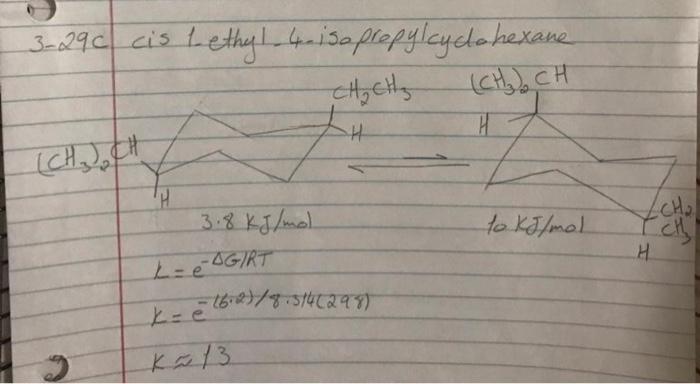 3-29c cis 1-ethyl-4-isopropylcyclohexane
CH₂CH₃
H
(CH₃)₂CH
H
(CH₃)₂CH
H
CH₂
CH₃
H
3.8 KJ/mol
10 KJ/mol
K = e^-ΔG/RT
K = e^-(6.2)/8.314(298)
K ≈ 13